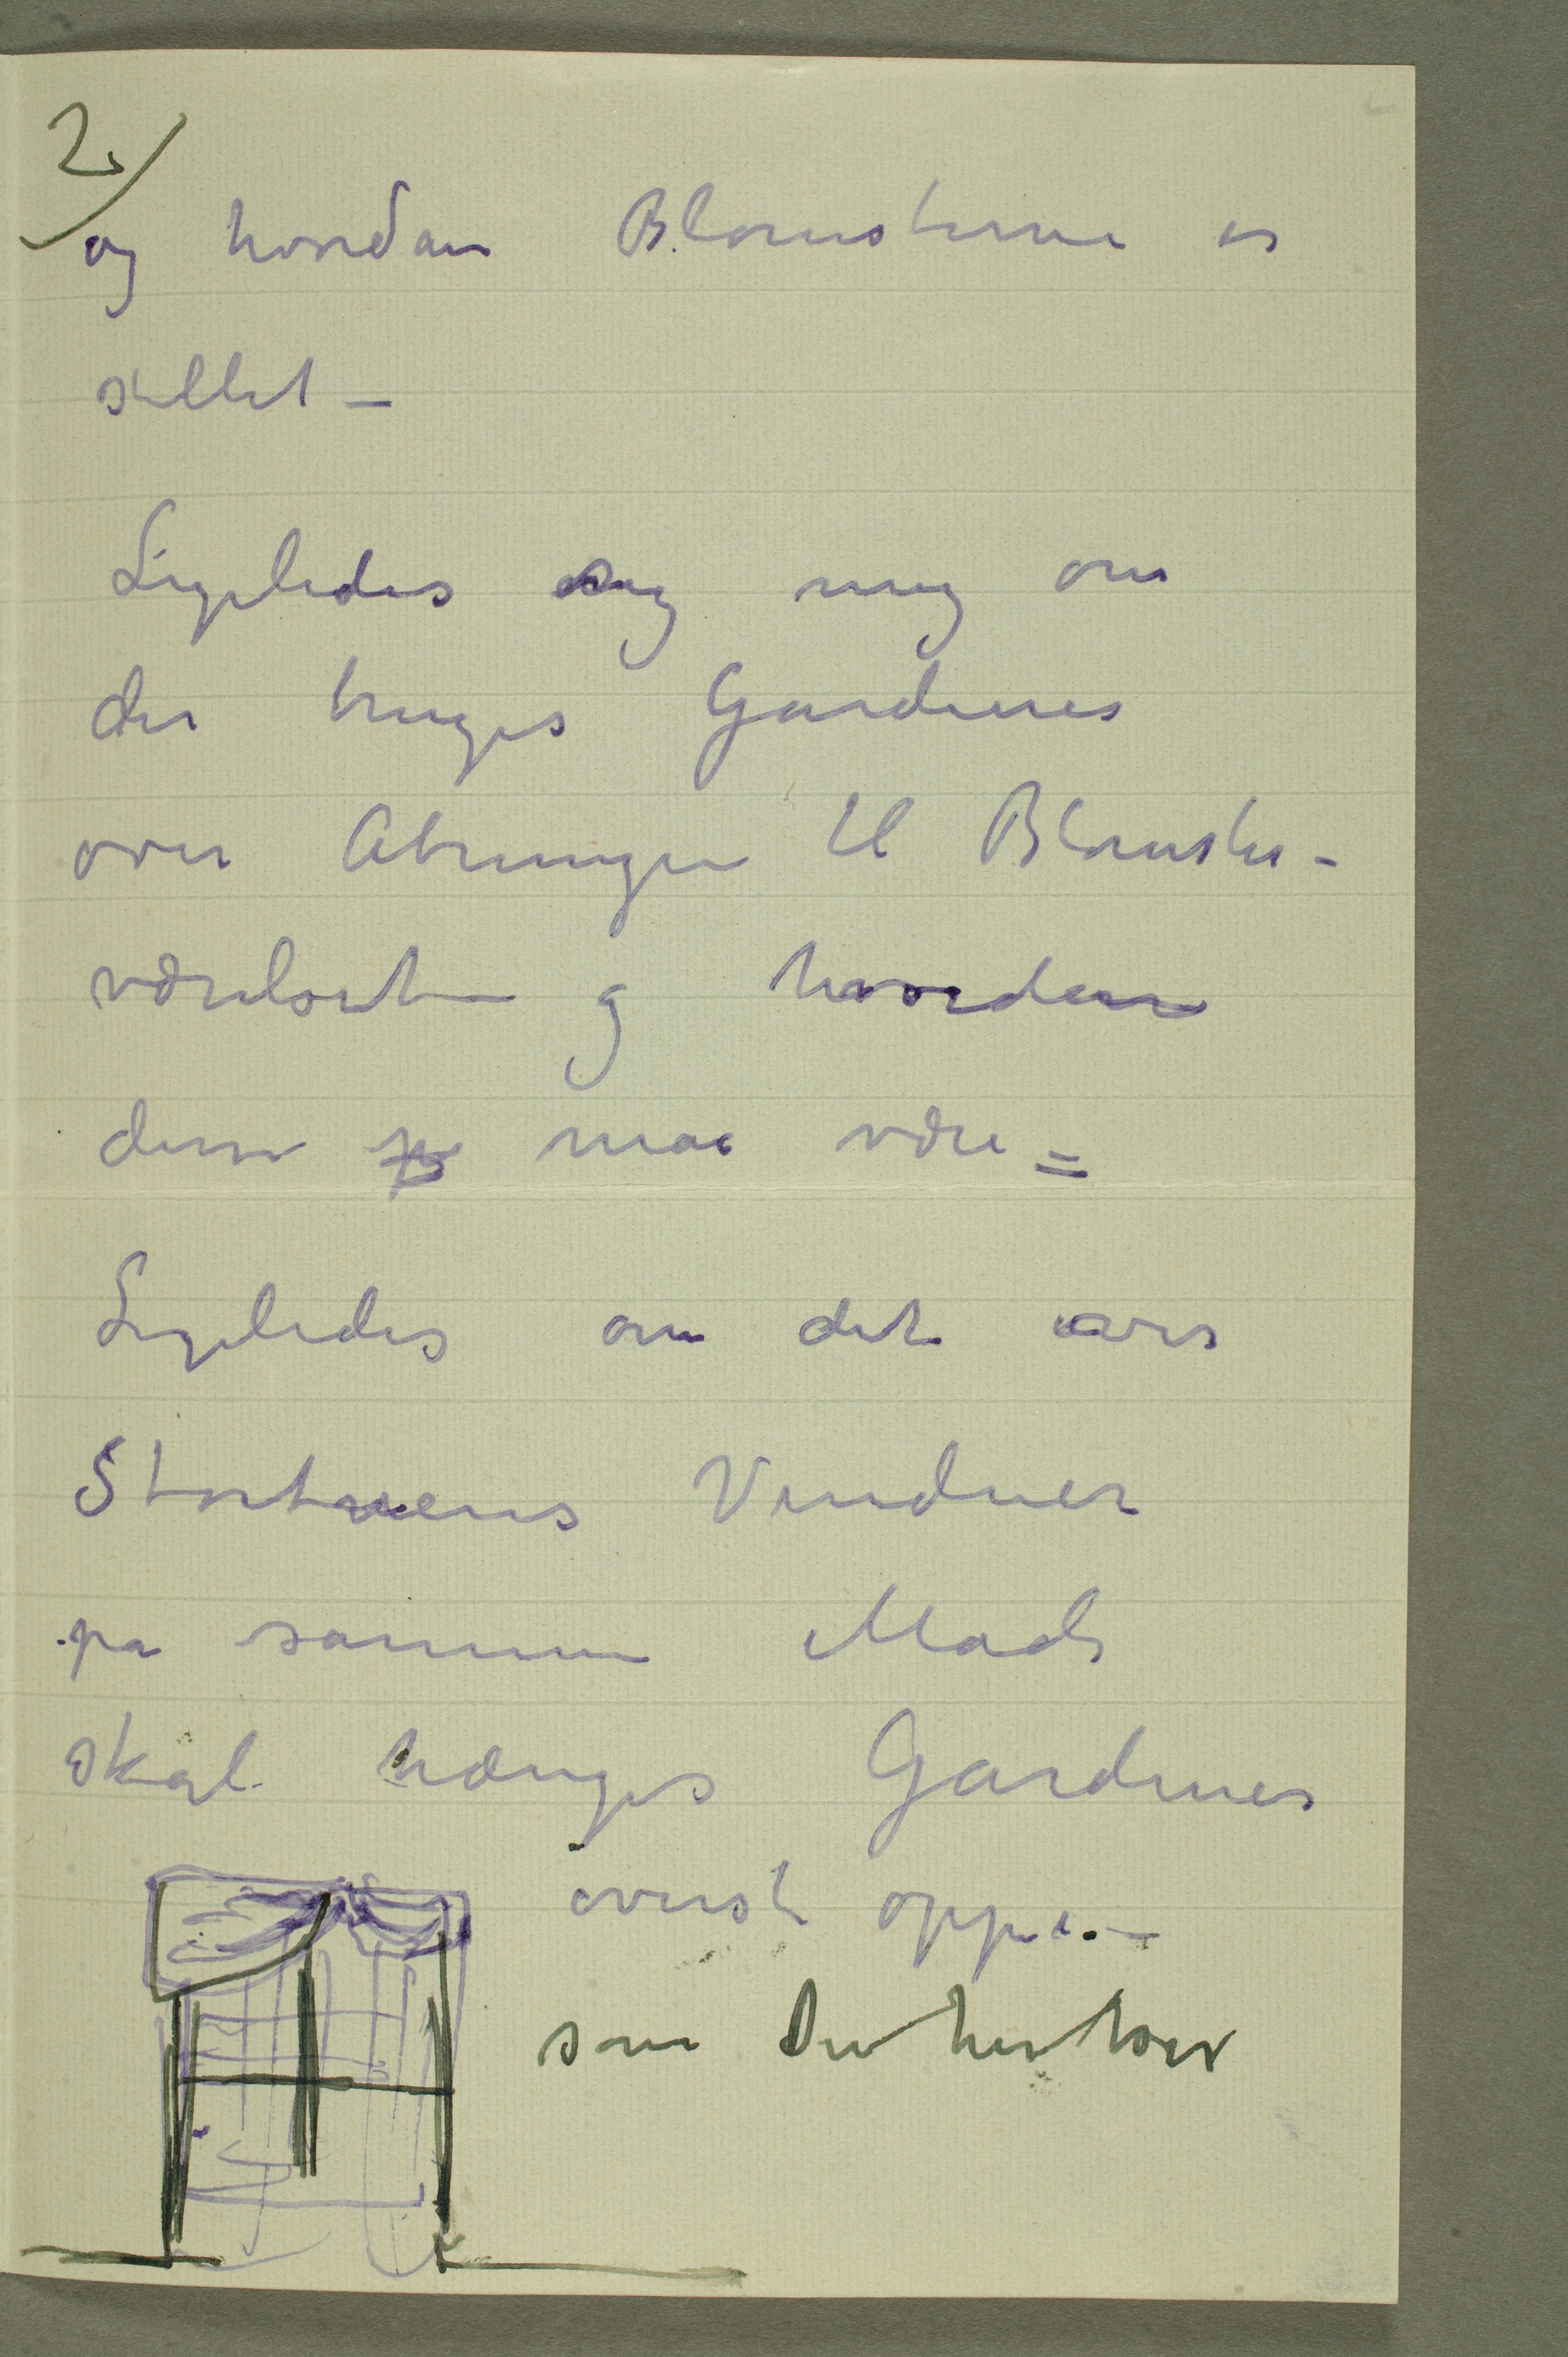 2,
og hvordan Blomsterne er
stillet –
Ligeledes sig mig om
der bruges Gardiner
over Åbningen til Blomster-
værelset og hvordan
disse må være =
Ligeledes om det over
Stortuens Vinduer
på samme Måde
skal hænges Gardiner
øverst oppe. –
som Du her ser